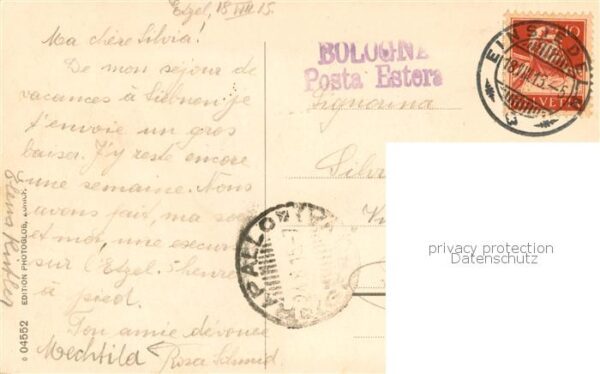 Etzel, 18 VIII 15.
Ma chère Silvia!
De mon séjour de
vacances à Siebnen je
t'envoie un gros
baiser. J'y reste encore
une semaine. Nous
avons fait, ma soeur
et moi, une excur
sur l'Etzel. 3 heures
à pied.
Ton amie dévouée
Mechtild Rosa Schmid.
BOLOGNE
Posta Estera
Signorina
Silvi
EINSIEDELN
18.VIII.15.-5
HELVETIA
10
RAPALLO
privacy protection
Datenschutz
04552 EDITION PHOTOGLOB, ZÜRICH